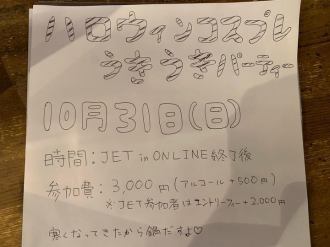 ハロウィンコスプレ
うきうきパーティー
10月31日(日)
時間:JET in ONLINE終了後
参加費:3,000円(アルコール+500円)
※JET参加者はエントリーフィー+2,000円
寒くなってきたから鍋だすよ♡